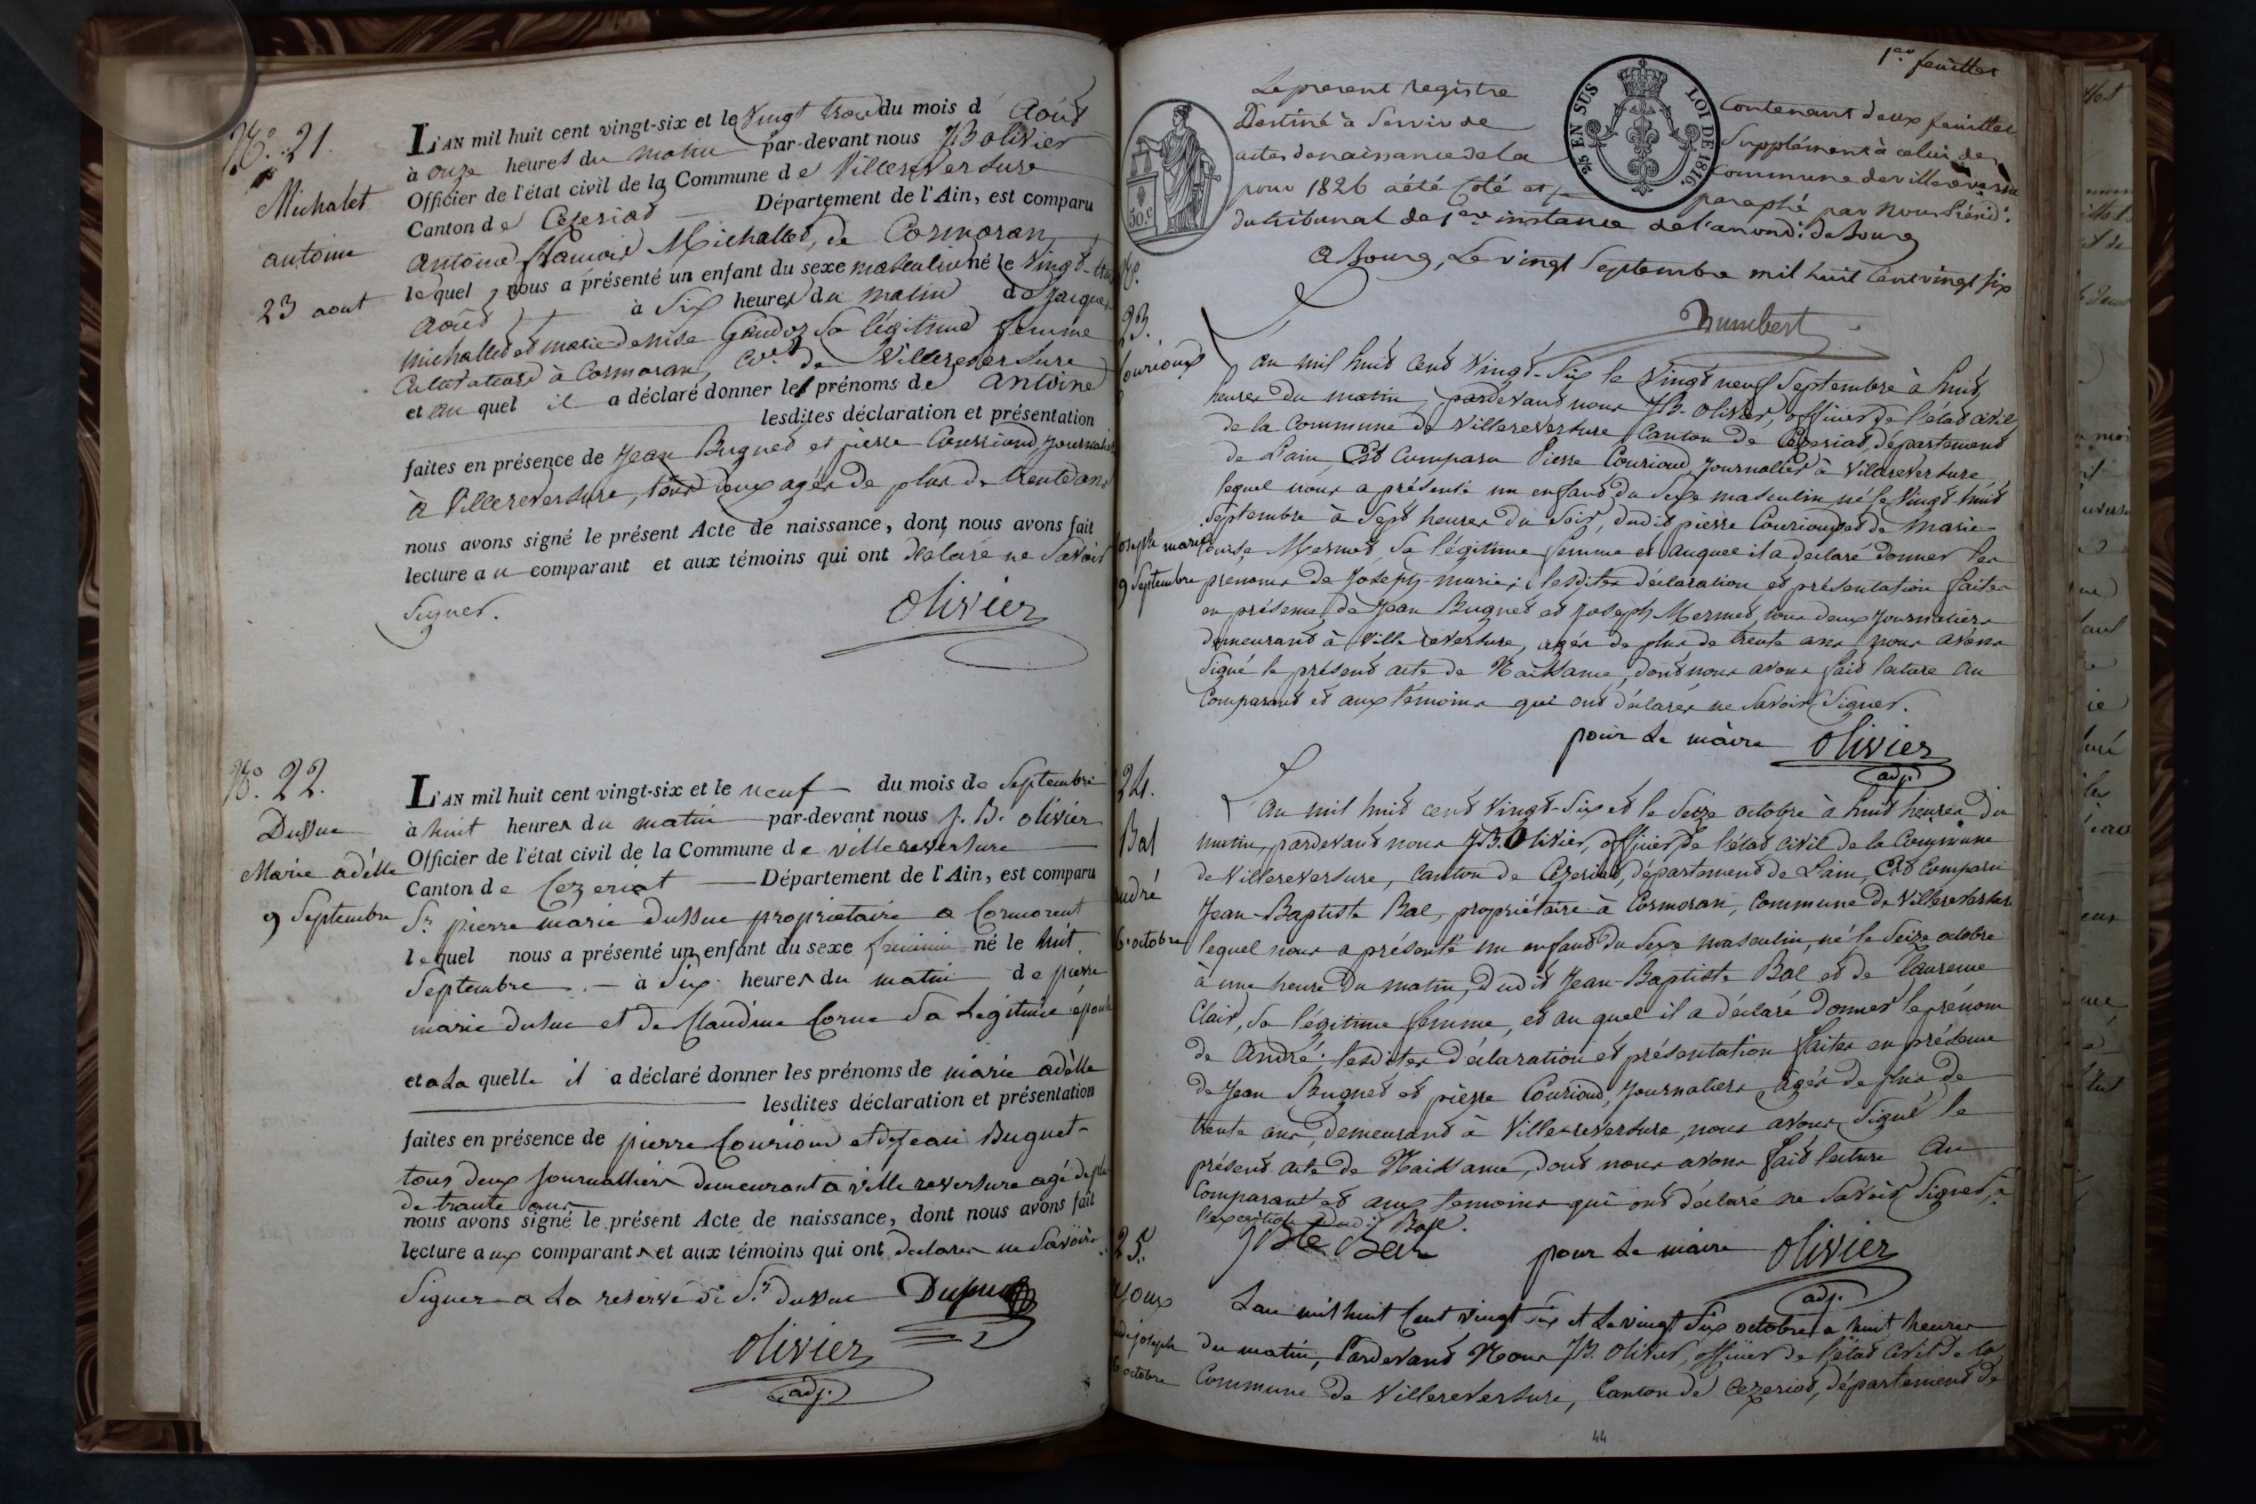 N.o 21.
Michalet
antoine
23 aout
L'AN mil huit cent vingt-six et le Vingt trois du mois d' Août
à onze heures du matin par-devant nous JB olivier
Officier de l'état civil de la Commune de Villereversure
Canton de Cezeriat Département de l'Ain, est comparu
antoine françois Michallet, de Cormoran
lequel nous a présenté un enfant du sexe masculin né le Vingt-trois
Août à Six heures du matin de Jacques
michallet et marie denise Gaudoz Sa légitime femme
Cultivateurs à Cormoran, Cne de Villereversure
et au quel il a déclaré donner les prénoms de antoine
lesdites déclaration et présentation
faites en présence de Jean Buguet et pierre Couriaud journaliers
à Villereversure, tous deux agés de plus de trente ans
nous avons signé le présent Acte de naissance, dont nous avons fait
lecture au comparant et aux témoins qui ont déclaré ne Savoir
Signer.
olivier
N.o 22.
Dussuc
Marie adélle
9 Septembre
L'AN mil huit cent vingt-six et le neuf du mois de Septembre
à huit heures du matin par-devant nous J. B. olivier
Officier de l'état civil de la Commune de villereversure
Canton de Cezeriat Département de l'Ain, est comparu
Sr pierre marie dussuc proprietaire a Cormorent
lequel nous a présenté un enfant du sexe feminin né le huit
Septembre à Six heures du matin de pierre
marie dusuc et de Claudine Cornu Sa Légitime épouse
et a La quelle il a déclaré donner les prénoms de marie adélle
lesdites déclaration et présentation
faites en présence de pierre Couriou et de Jean Buguet
tous deux Journalliers demeurant a ville reversure agé de plus
de trante ans
nous avons signé le présent Acte de naissance, dont nous avons fait
lecture aux comparants et aux témoins qui ont declarer ne Savoire
Signer a La reserve de Sr dussuc Dussuc
olivier
adj.
1er feuillet
Le present registre
Destiné à Servir de
actes de naissance de la
pour 1826 a été Coté et
25 EN SUS LOI DE 1816.
30.c
Contenant deux feuilles
Supplément à celui de
Commune de villereversure
paraphé par Nous Présid.t
du tribunal de 1ere instance de l'arrond.t de Bourg
a Bourg, Le vingt Septembre mil huit cent vingt Six
Humbert
N.o
23.
Courioux
Joseph marie
9 Septembre
L'an mil huit cent Vingt-Six le Vingt neuf Septembre à huit
heures du matin, pardevant nous JB. olivier, officier de l'état civil
de la Commune de Villereversure Canton de Cézeriat département
de L'ain, Est Comparu Pierre Couriaud Journalier à Villereversure
lequel nous a présenté un enfant du Sexe masculin, né le Vingt-huit
Septembre à Sept heures du Soir, dudit pierre Courioux et de Marie
Louise Mermet, Sa légitime femme et auquel il a declaré donner les
prenoms de Joseph-marie; lesdites déclaration et présentation faites
en présence de Jean Buguet et Joseph Mermet, tous deux Journaliers
demeurant à Ville reversure, agés de plus de trente ans nous avons
Signé le présent acte de Naissance, dont nous avons fait lecture au
Comparant et aux témoins qui ont déclarés ne Savoir Signer.
pour Le maire olivier
adj.
24.
Bal
andré
6 octobre
L'an mil huit cent Vingt-Six et le Seize octobre à huit heures du
matin, pardevant nous JB. Olivier, officier de l'état civil de la Commune
de Villereversure, Canton de Cézeriat, département de L'ain, Est Comparu
Jean-Baptiste Bal, propriétaire à Cormoran, Commune de Villereversure
lequel nous a présenté un enfant du Sexe masculin, né le Seize octobre
à une heure du matin, dudit Jean-Baptiste Bal et de Laurence
Clair, Sa légitime femme, et au quel il a déclaré donner le prénom
de André; lesdites déclaration et présentation faites en présence
de Jean Buguet et pierre Courioud, Journaliers agés de plus de
trente ans, demeurant à Villereversure, nous avons Signé le
présent acte de Naissance, dont nous avons fait lecture au
Comparant et aux temoins qui ont déclaré ne Savoir Signer, à
l'exception dudit Bal.
JBte Bal pour Le maire olivier
adj.
25.
Joux
joseph
6 octobre
Lan mil huit Cent vingt Six et Le vingt Six octobre a huit heures
du matin, Pardevant Nous JB. olivier, officier de l'état civil de la
Commune de Villereversure, Canton de Cezeriat, département de
44